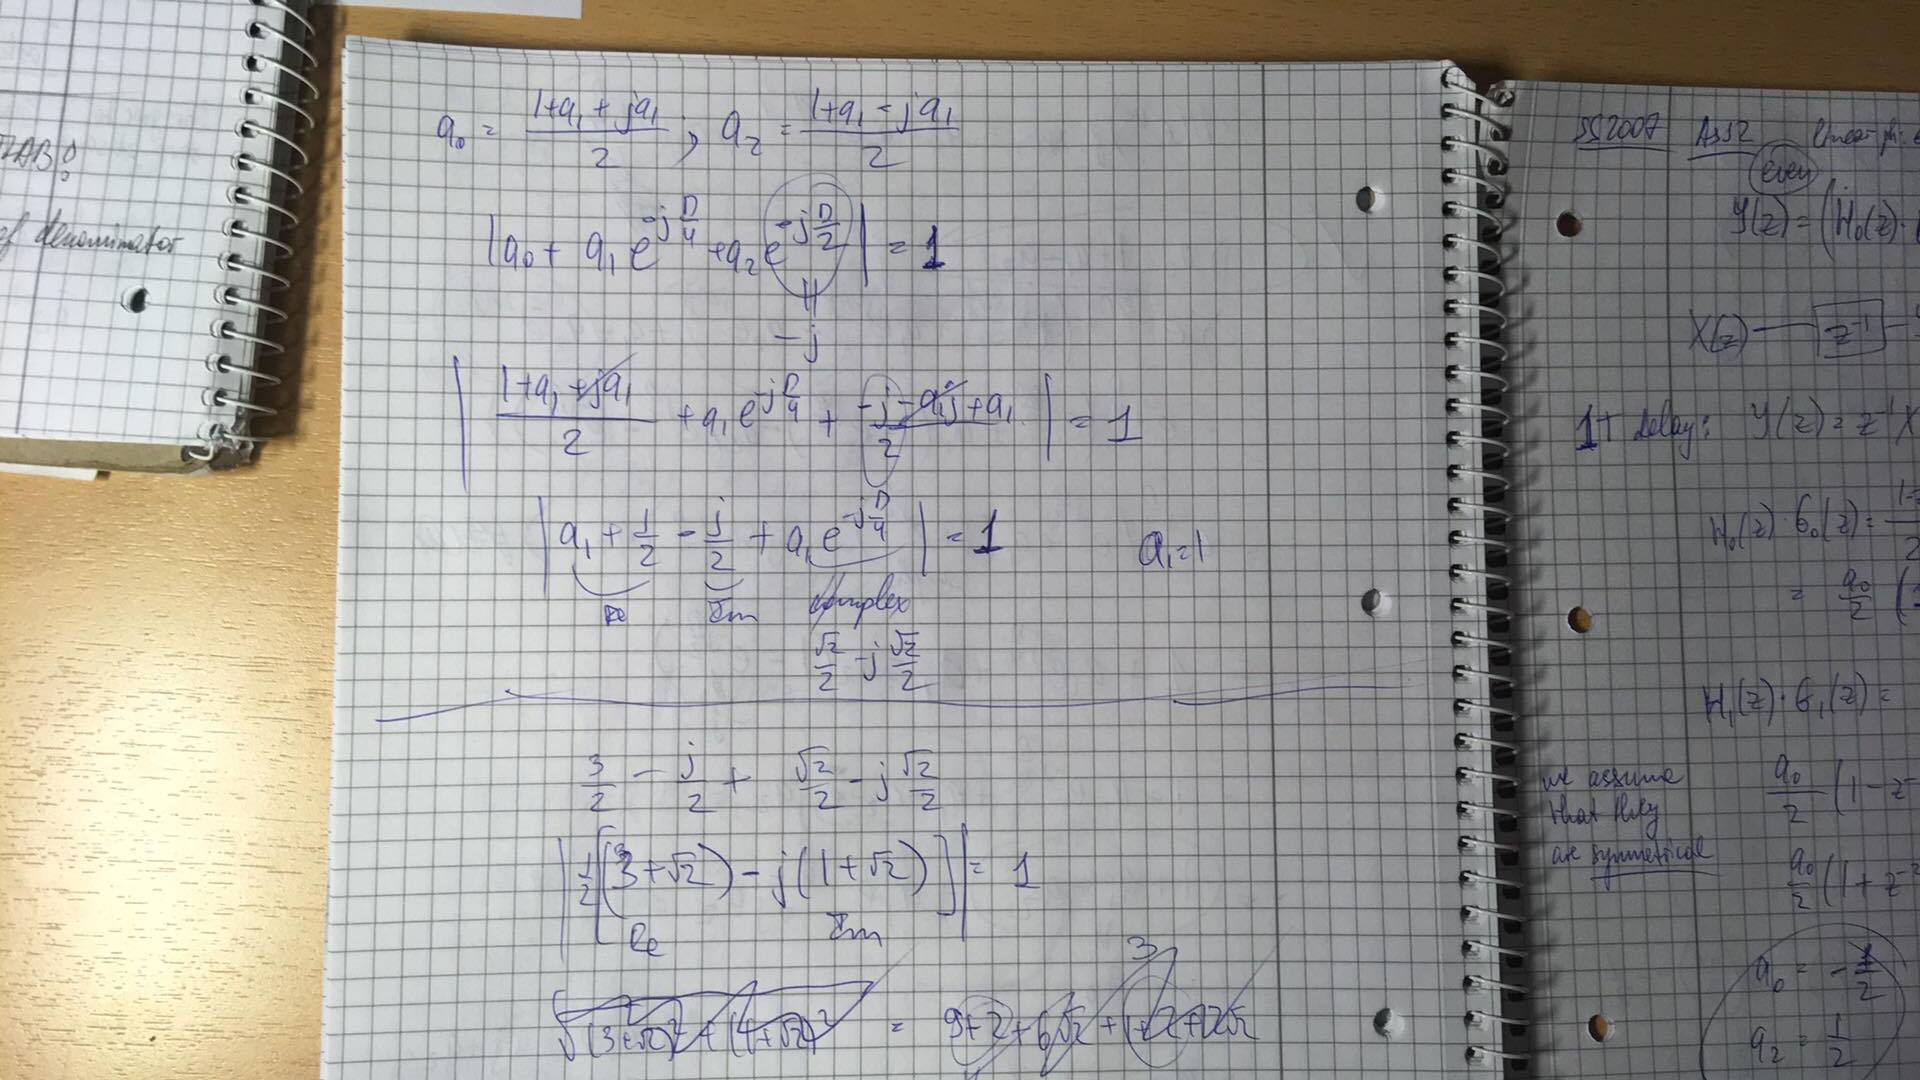 TLAB?
of denominator
a₀ = (1+a₁+ja₁)/2 ; a₂ = (1+a₁-ja₁)/2
|a₀ + a₁e^(-jπ/4) + a₂e^(-jπ/2)| = 1
=
-j
|(1+a₁+ja₁)/2 + a₁e^(-jπ/4) + (-j-a₁j+a₁)/2| = 1
|a₁ + 1/2 - j/2 + a₁e^(-jπ/4)| = 1 a₁=1
Re Im complex
√2/2 - j √2/2
3/2 - j/2 + √2/2 - j √2/2
|1/2[(3+√2) - j(1+√2)]| = 1
Re Im
3
√((3+√2)²+(1+√2)²) = 9+2+6√2+1+2+2√2
SS2007 Ass2 linear ph.
even
Y(z)=(H₀(z)·
X(z) z⁻¹
1+ delay: Y(z)=z⁻¹X
H₀(z)·G₀(z)=
= a₀/2 (
H₁(z)·G₁(z)=
we assume
that they
are symmetrical
a₀/2 (1-z⁻
a₀/2 (1+z⁻²
a₀ = -1/2
a₂ = 1/2